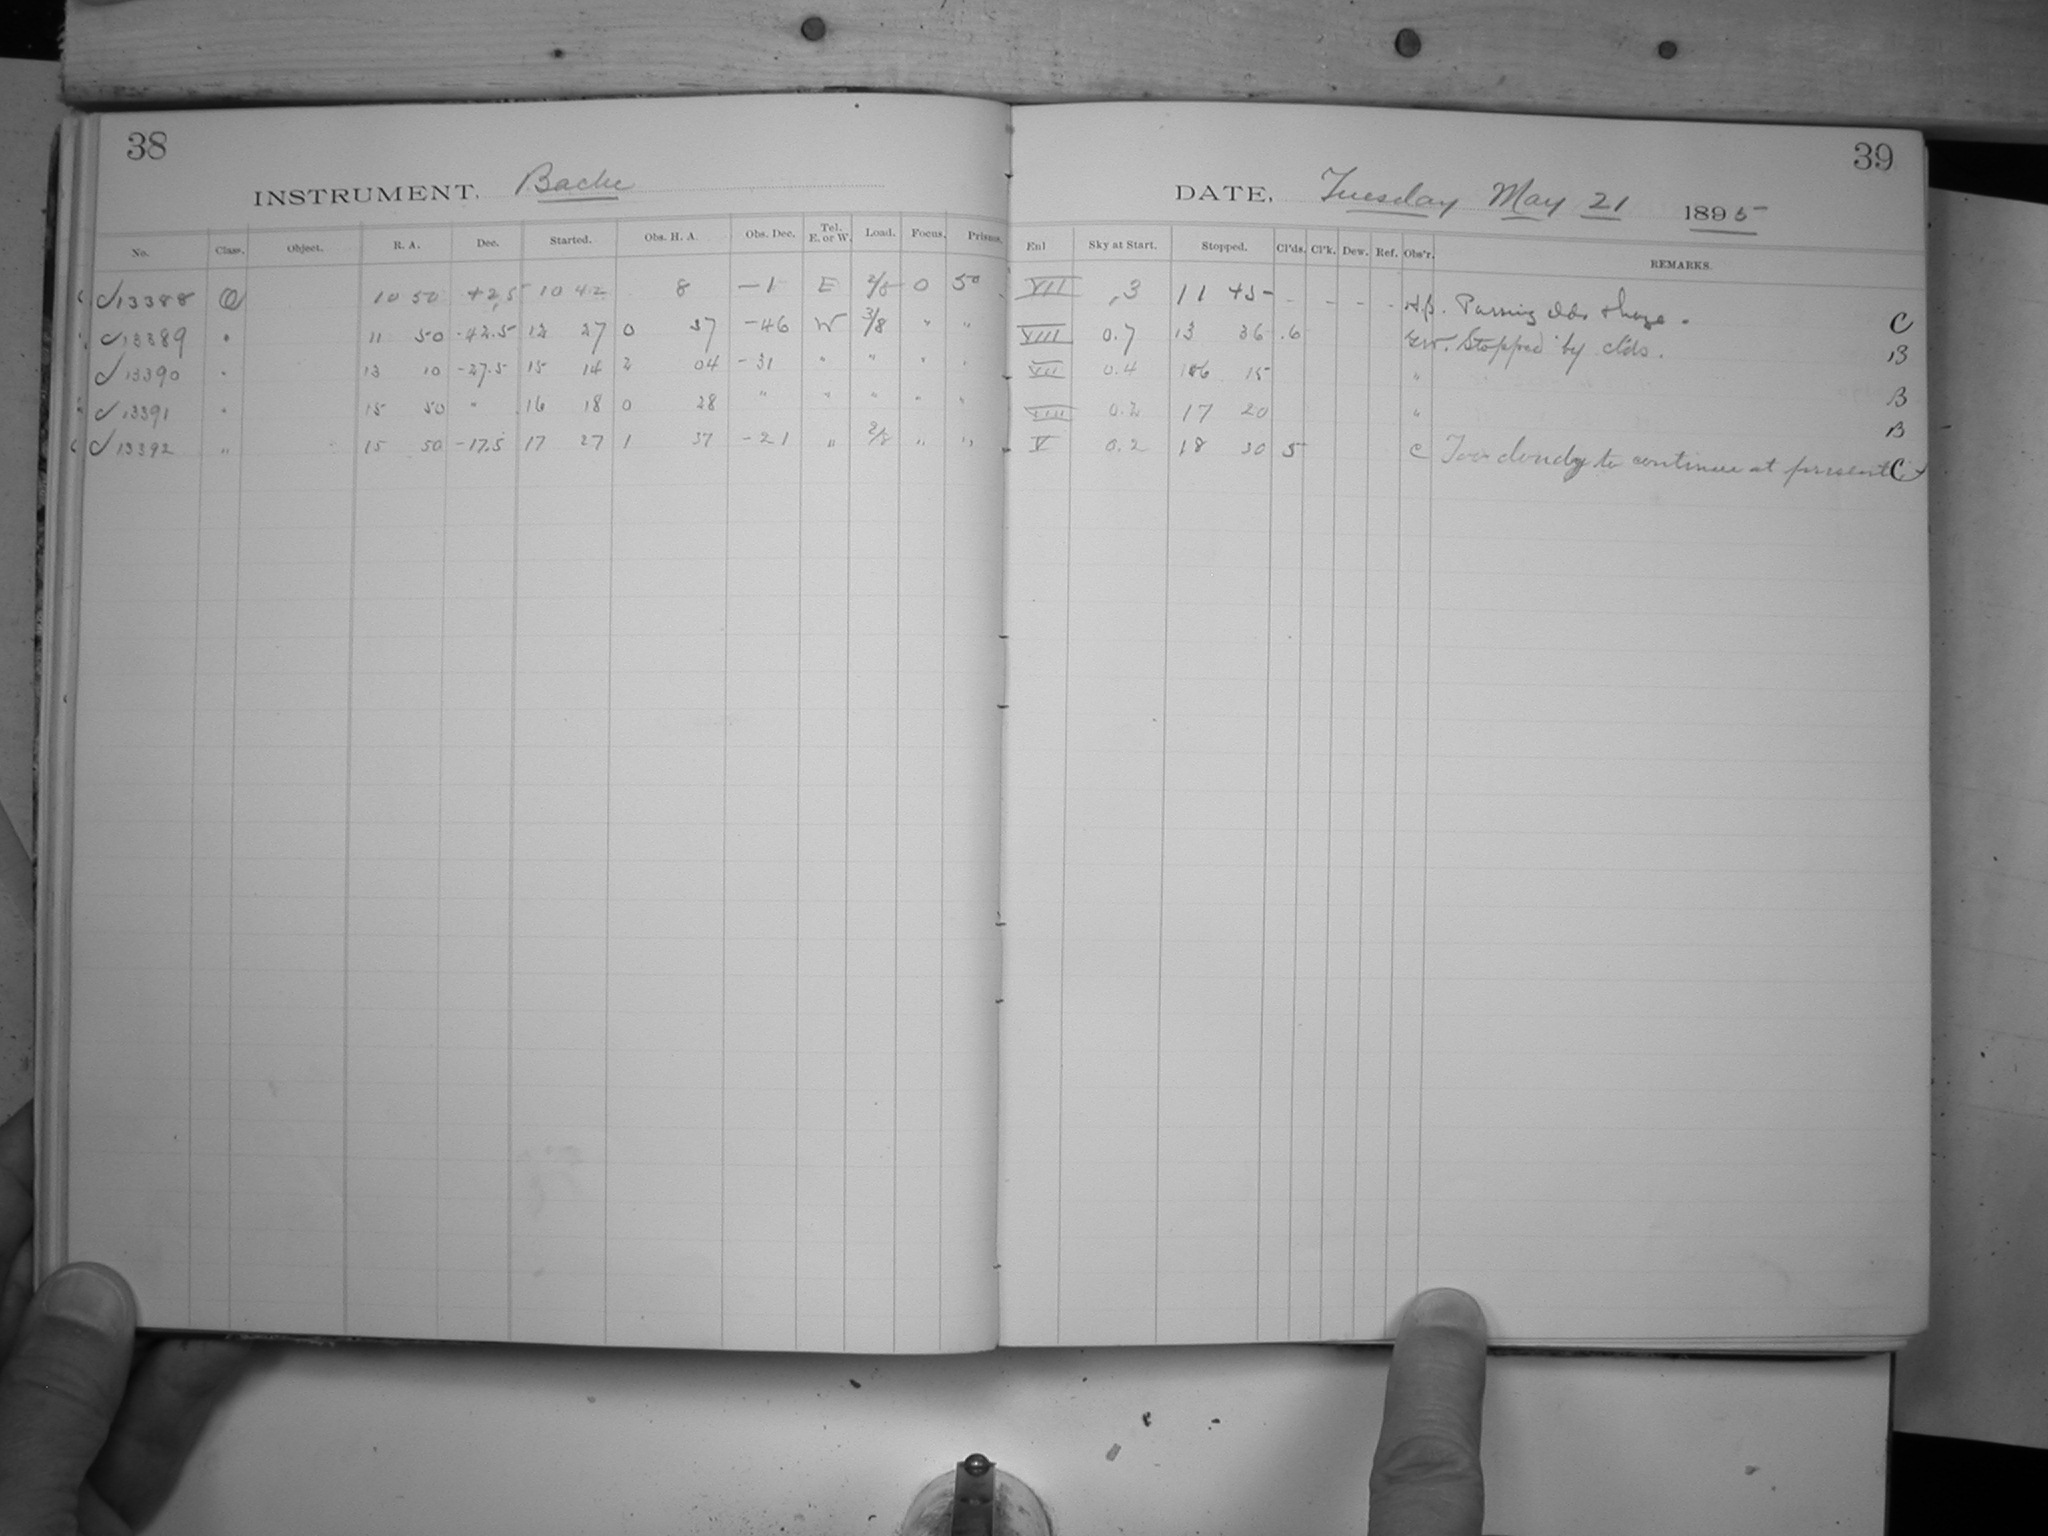 38
INSTRUMENT. Bache
No. Class. Object. R. A. Dec. Started. Obs. H. A. Obs. Dec. Tel. E. or W. Load. Focus. Prisms.
13388 10 50 +2.5 10 42 8 —1 E 2/8 0 50
13389 " 11 50 -42.5 12 27 0 37 -46 W 3/8 " "
13390 " 13 10 -27.5 15 14 2 04 -31 " " " "
13391 " 15 50 " 16 18 0 28 " " " " "
13392 " 15 50 -17.5 17 27 1 37 -21 " 2/8 " "
39
DATE, Tuesday May 21 1895
Enl Sky at Start. Stopped. Cl'ds. Cl'k. Dew. Ref. Obs'r. REMARKS.
VII .3 11 45 - - - - Passing clds & haze. C
VIII 0.7 13 36 .6 Stopped by clds. B
VII 0.4 16 15 " B
VIII 0.2 17 20 " B
V 0.2 18 30 5 C Too cloudy to continue at present C